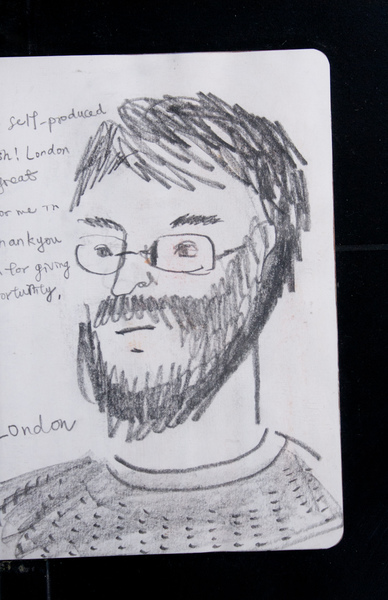 self-produced
! London
great
for me in
Thankyou
for giving
London